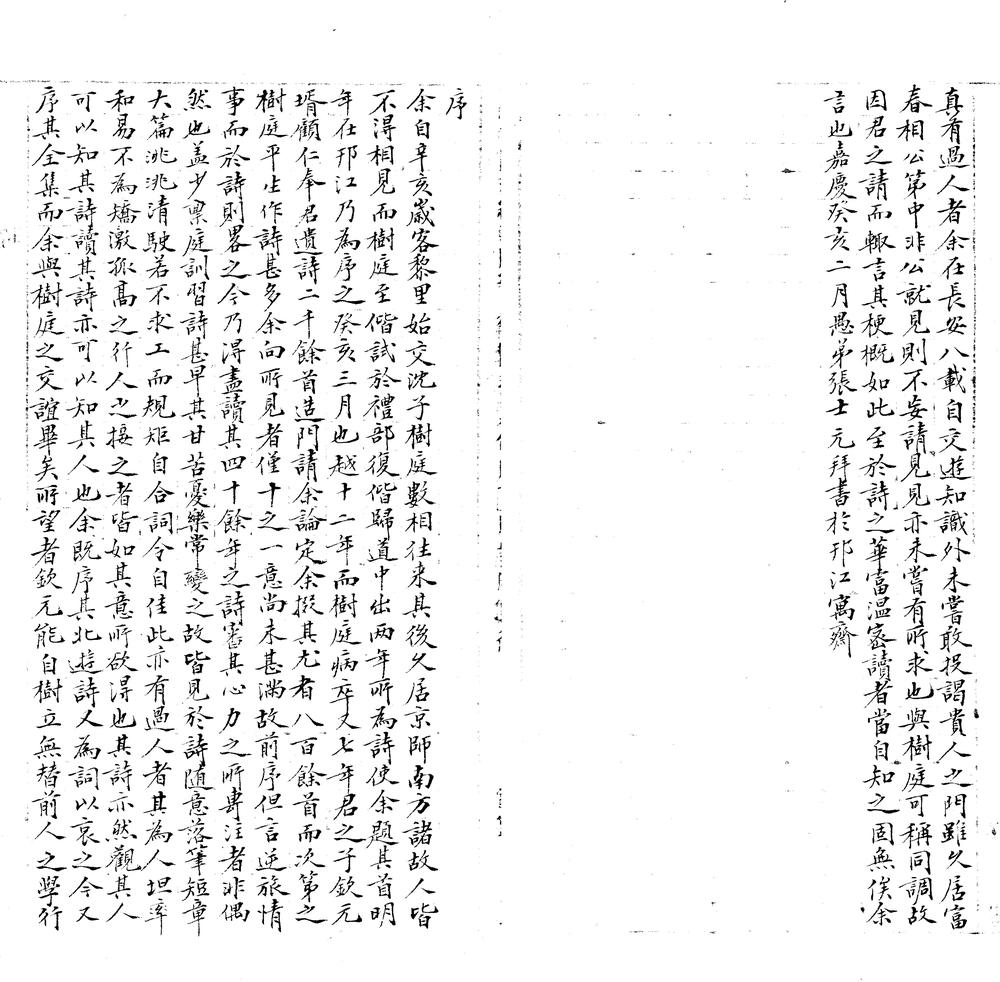 真有過人者余在長安八載自交遊知識外未嘗敢投謁貴人之門雖久居富
春相公第中非公就見則不妄請見見亦未嘗有所求也與樹庭可稱同調故
因君之請而輙言其梗概如此至於詩之華富溫密讀者當自知之固無俟余
言也嘉慶癸亥二月愚弟張士元拜書於邗江寓齋
序
余自辛亥歲客黎里始交沈子樹庭數相往来其後久居京師南方諸故人皆
不得相見而樹庭至偕試於禮部復偕歸道中出两年所為詩使余題其首明
年在邗江乃為序之癸亥三月也越十二年而樹庭病卒又七年君之子欽元
壻顧仁奉君遺詩二千餘首造門請余論定余掇其尤者八百餘首而次第之
樹庭平生作詩甚多余向所見者僅十之一意尚未甚滿故前序但言逆旅情
事而於詩則畧之今乃得盡讀其四十餘年之詩審其心力之所專注者非偶
然也盖少稟庭訓習詩甚早其甘苦憂樂常變之故皆見於詩隨意落筆短章
大篇洮洮清駛若不求工而規矩自合詞令自佳此亦有過人者其為人坦率
和易不為矯激孤高之行人之接之者皆如其意所欲得也其詩亦然觀其人
可以知其詩讀其詩亦可以知其人也余既序其北遊詩又為詞以哀之今又
序其全集而余與樹庭之交誼畢矣所望者欽元能自樹立無替前人之學行